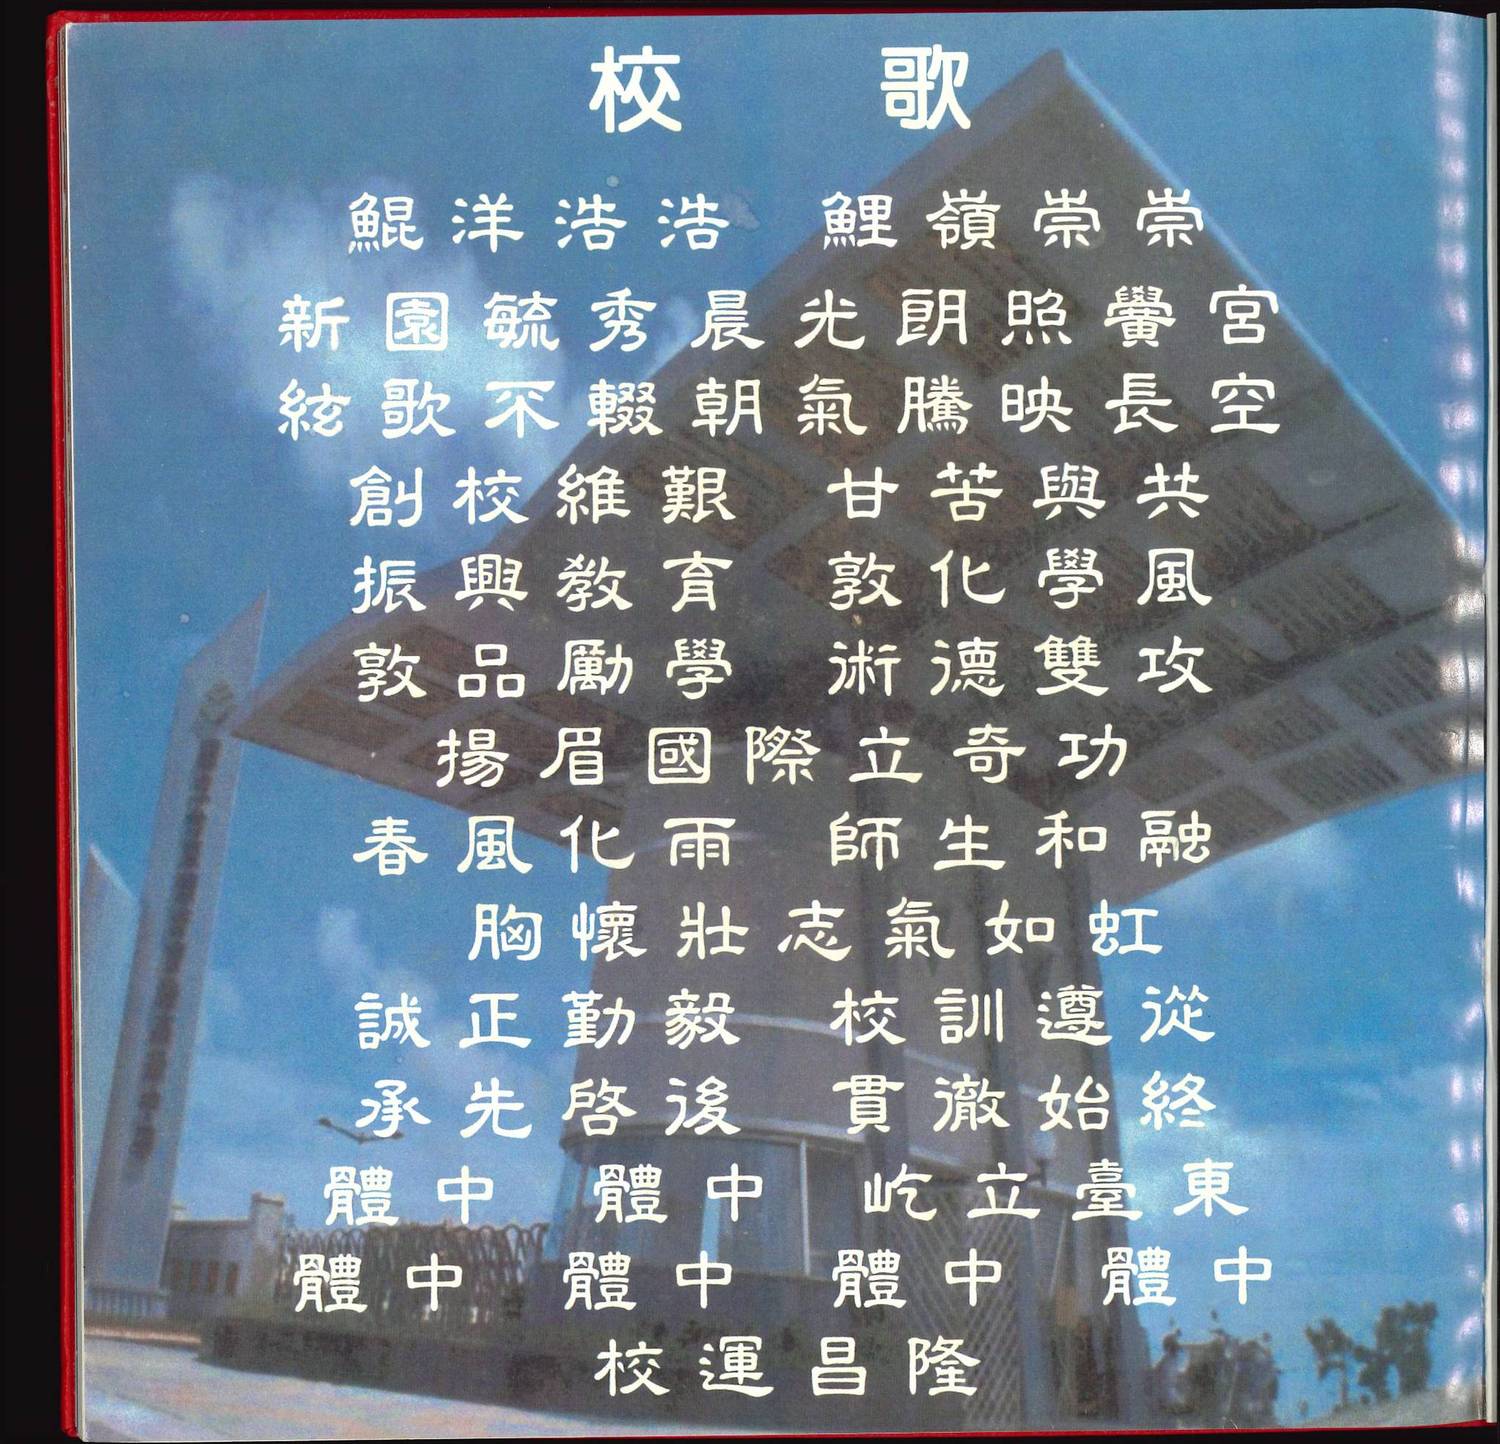 校 歌
鯤洋浩浩 鯉嶺崇崇
新園毓秀晨光朗照黌宮
絃歌不輟朝氣騰映長空
創校維艱 甘苦與共
振興教育 敦化學風
敦品勵學 術德雙攻
揚眉國際立奇功
春風化雨 師生和融
胸懷壯志氣如虹
誠正勤毅 校訓遵從
承先啓後 貫徹始終
體中 體中 屹立臺東
體中 體中 體中 體中
校運昌隆